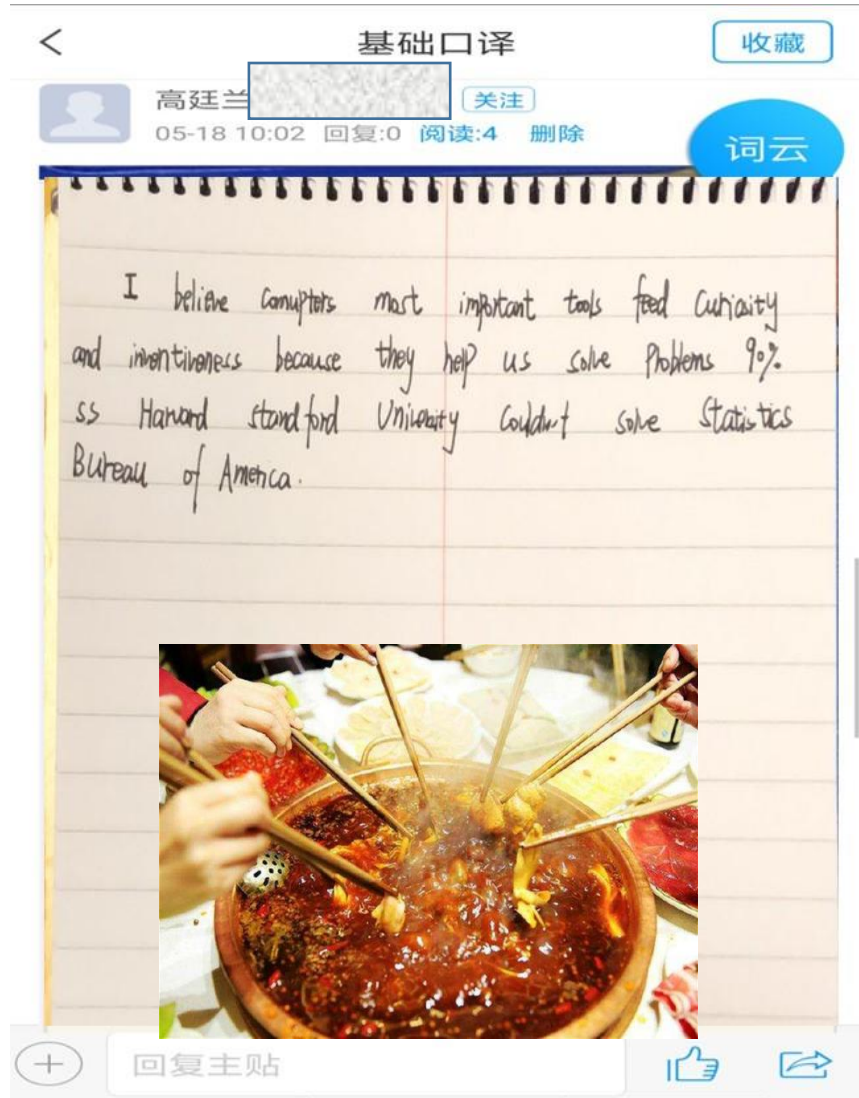 基础口译
收藏
高廷兰
关注
05-18 10:02 回复:0 阅读:4 删除
词云
I believe comupters most important tools feed curiosity
and inventiveness because they help us solve Problems 90%
ss Harvard standford University couldn't solve Statistics
Bureau of America.
回复主贴